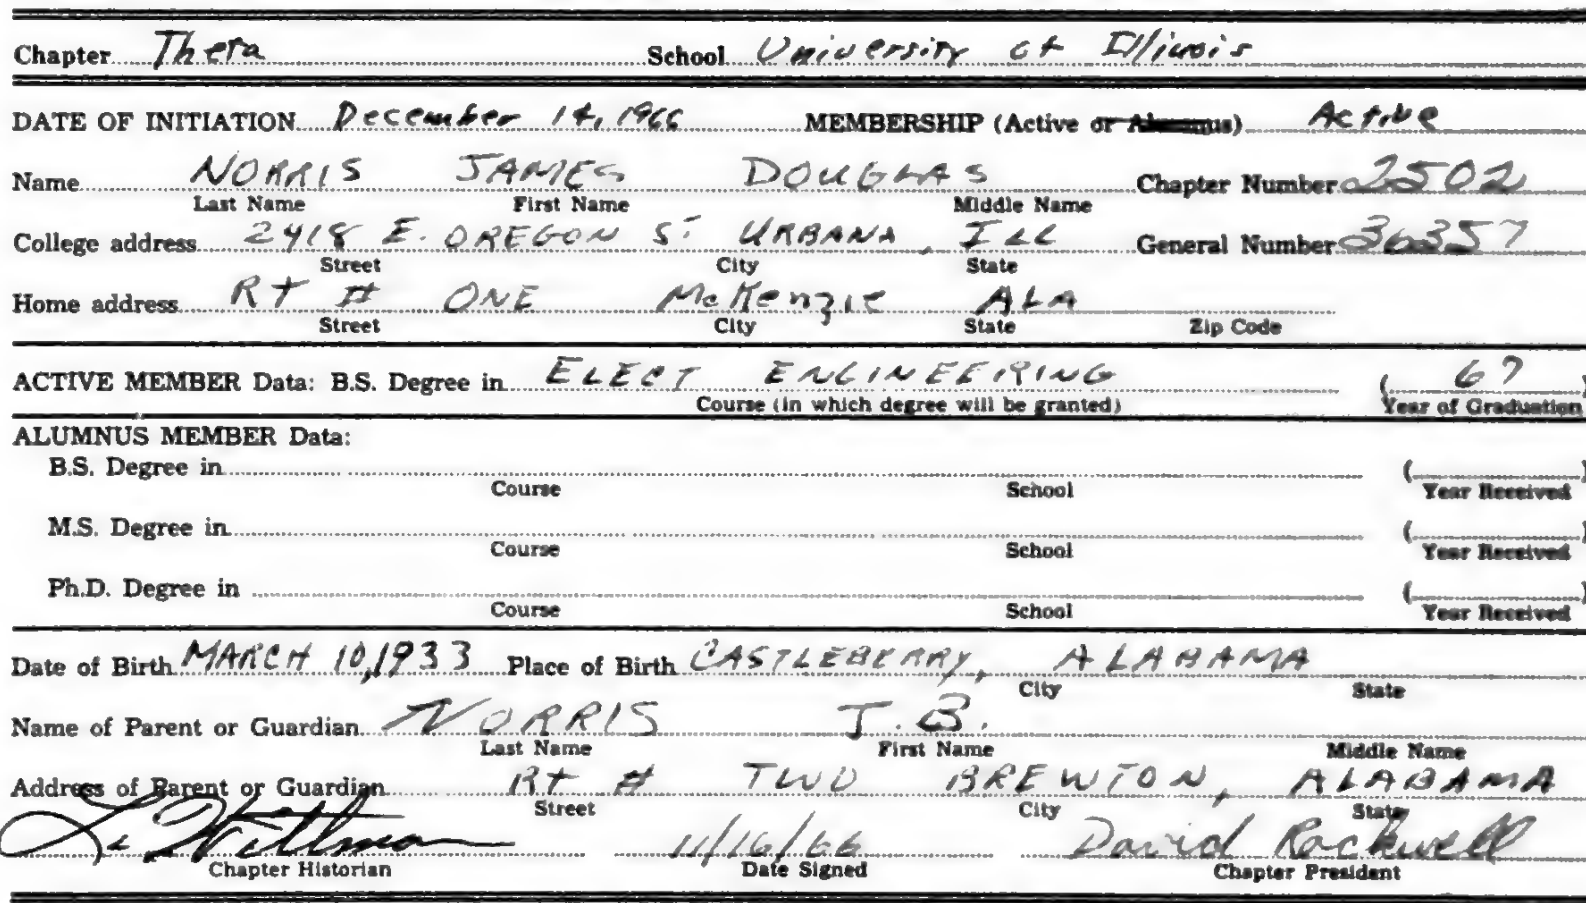 Chapter Theta School University of Illinois
DATE OF INITIATION December 14, 1966 MEMBERSHIP (Active or Alumnus) Active
Name NORRIS JAMES DOUGLAS Chapter Number 2502
Last Name First Name Middle Name
College address 2418 E. OREGON ST URBANA, ILL General Number 36357
Street City State
Home address Rt # ONE McKenzie ALA
Street City State Zip Code
ACTIVE MEMBER Data: B.S. Degree in ELECT ENGINEERING (67)
Course (in which degree will be granted) Year of Graduation
ALUMNUS MEMBER Data:
B.S. Degree in ( )
Course School Year Received
M.S. Degree in ( )
Course School Year Received
Ph.D. Degree in ( )
Course School Year Received
Date of Birth MARCH 10, 1933 Place of Birth CASTLEBERRY, ALABAMA
City State
Name of Parent or Guardian NORRIS T. B.
Last Name First Name Middle Name
Address of Parent or Guardian Rt # TWO BREWTON, ALABAMA
Street City State
11/16/66 David Rockwell
Chapter Historian Date Signed Chapter President